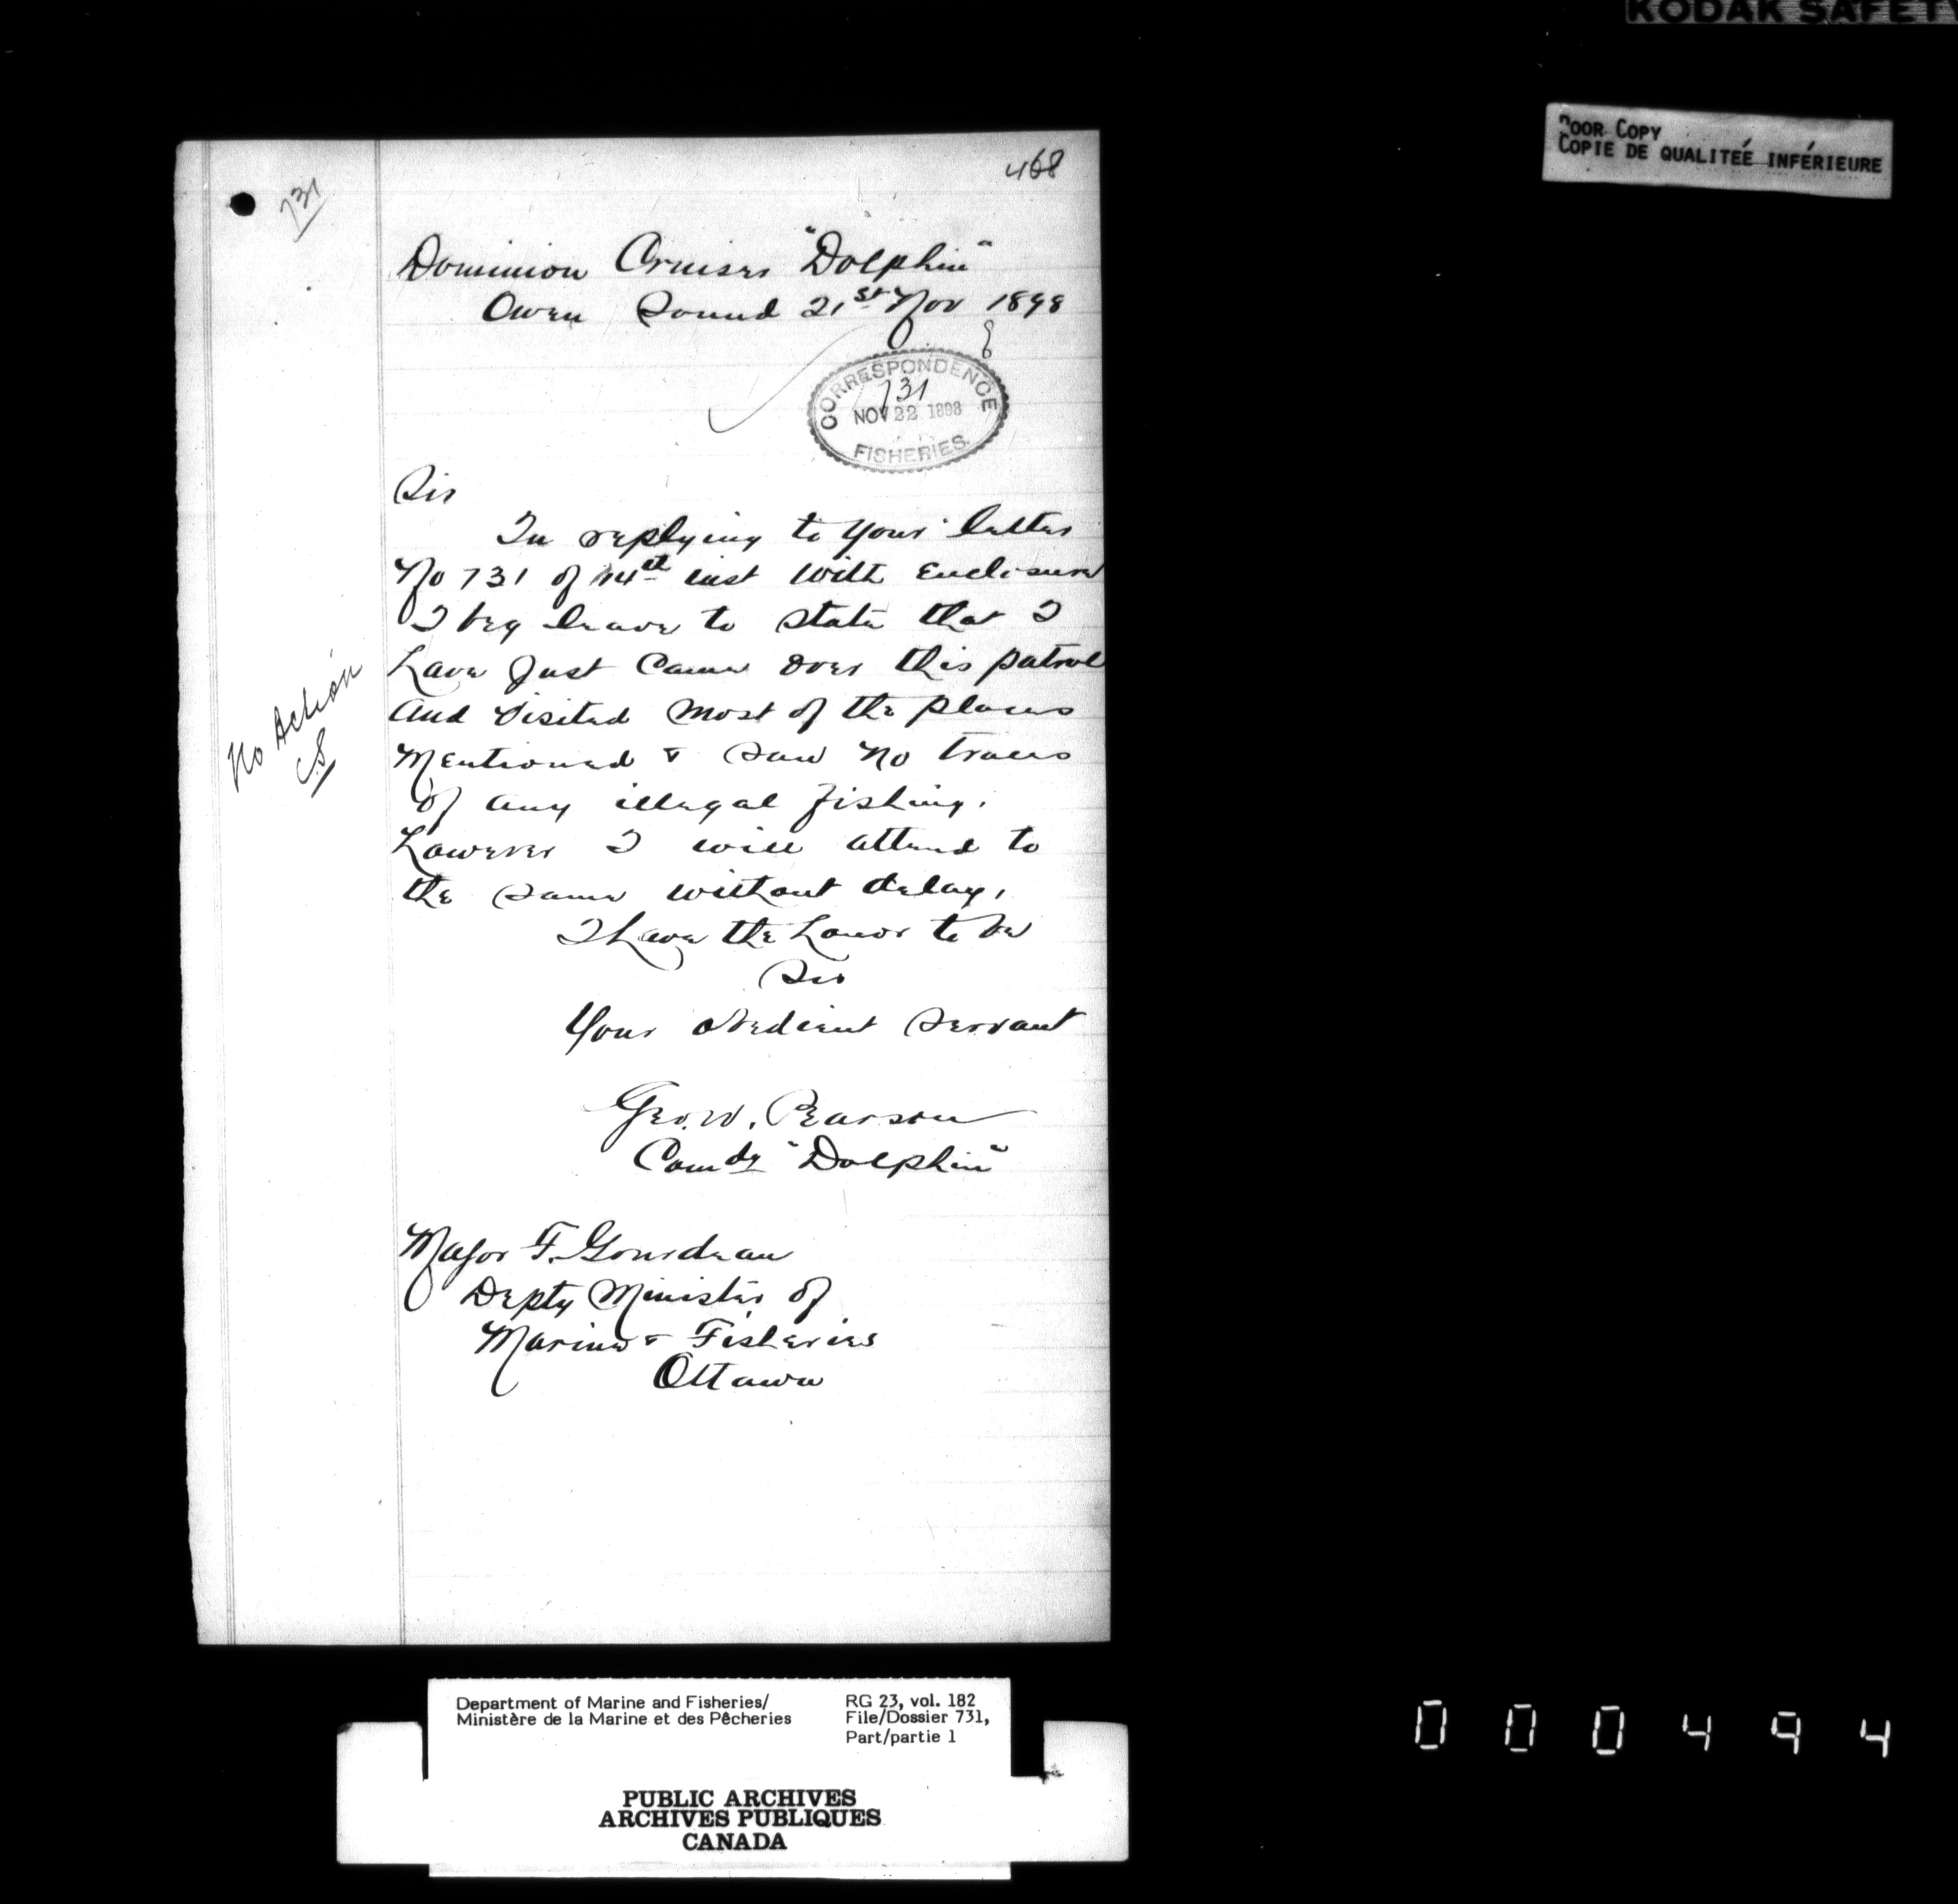 KODAK SAFETY
POOR COPY
COPIE DE QUALITEÉ INFÉRIEURE
468
731
Dominion Cruiser "Dolphin"
Owen Sound 21st Nov 1898
8
CORRESPONDENCE
731
NOV 22 1898
FISHERIES.
Sir
In replying to your letter
No 731 of 14th inst with Enclosure
I beg leave to state that I
have just came over this patrol
and visited most of the places
Mentioned & saw no traces
of any illegal fishing.
however I will attend to
the same without delay,
I have the honor to be
Sir
Your obedient servant
Geo. W. Pearson
Comdg "Dolphin"
Major F. Gourdeau
Depty Minister of
Marine & Fisheries
Ottawa
No Action
Department of Marine and Fisheries/
Ministère de la Marine et des Pêcheries
RG 23, vol. 182
File/Dossier 731,
Part/partie 1
PUBLIC ARCHIVES
ARCHIVES PUBLIQUES
CANADA
000494